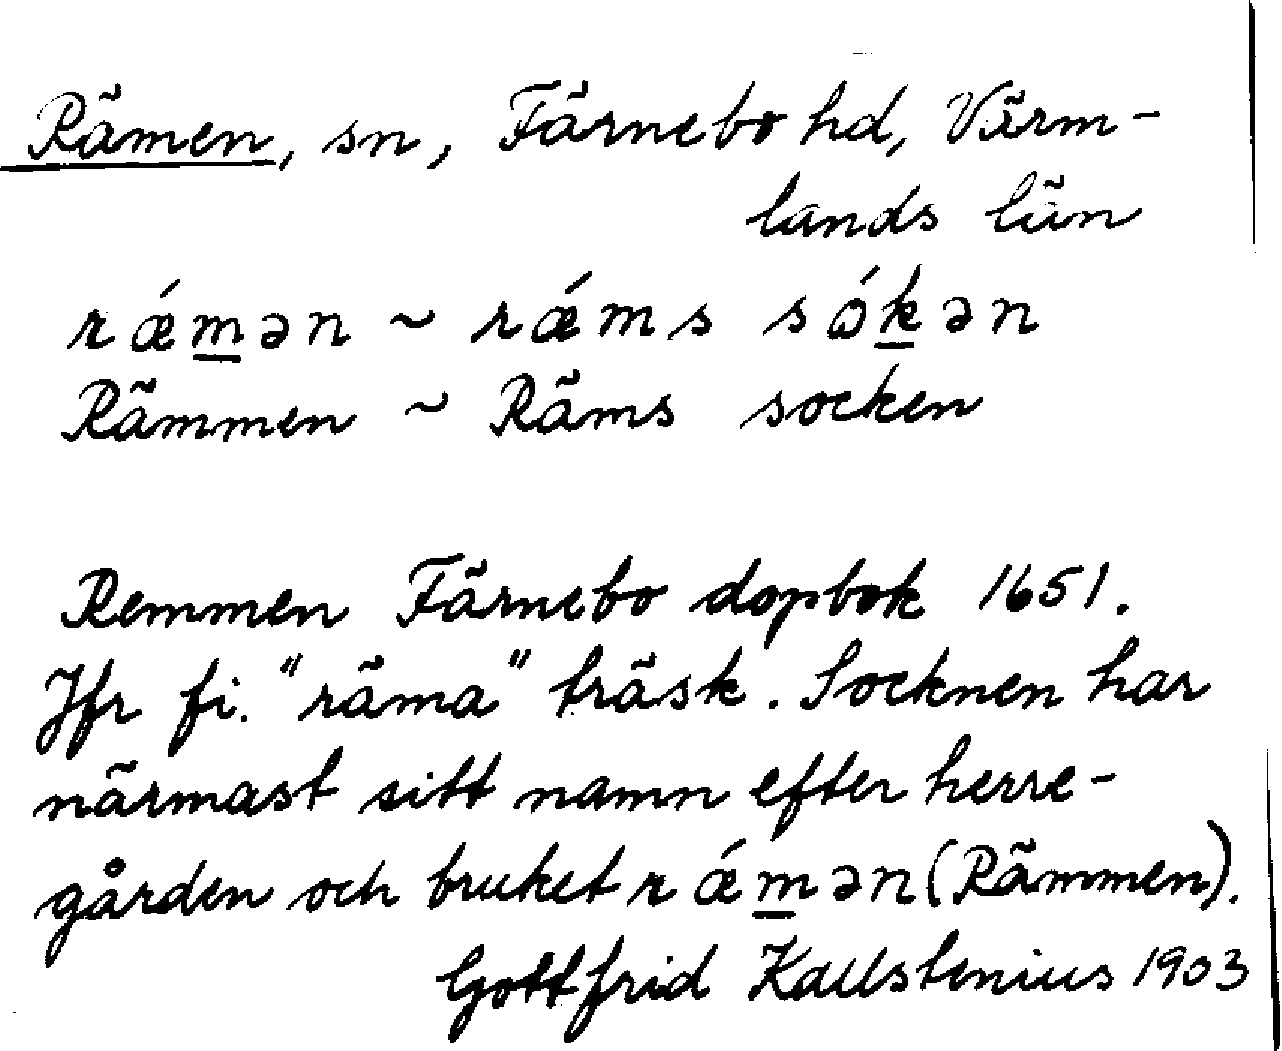 Rämen, sn, Färnebo hd, Värm-
lands län
rǽm̲ən ~ rǽms sók̲ən
Rämmen ~ Räms socken
Remmen Färnebo dopbok 1651.
Jfr fi. "räma" träsk. Socknen har
närmast sitt namn efter herre-
gården och bruket rǽm̲ən (Rämmen).
Gottfrid Kallstenius 1903